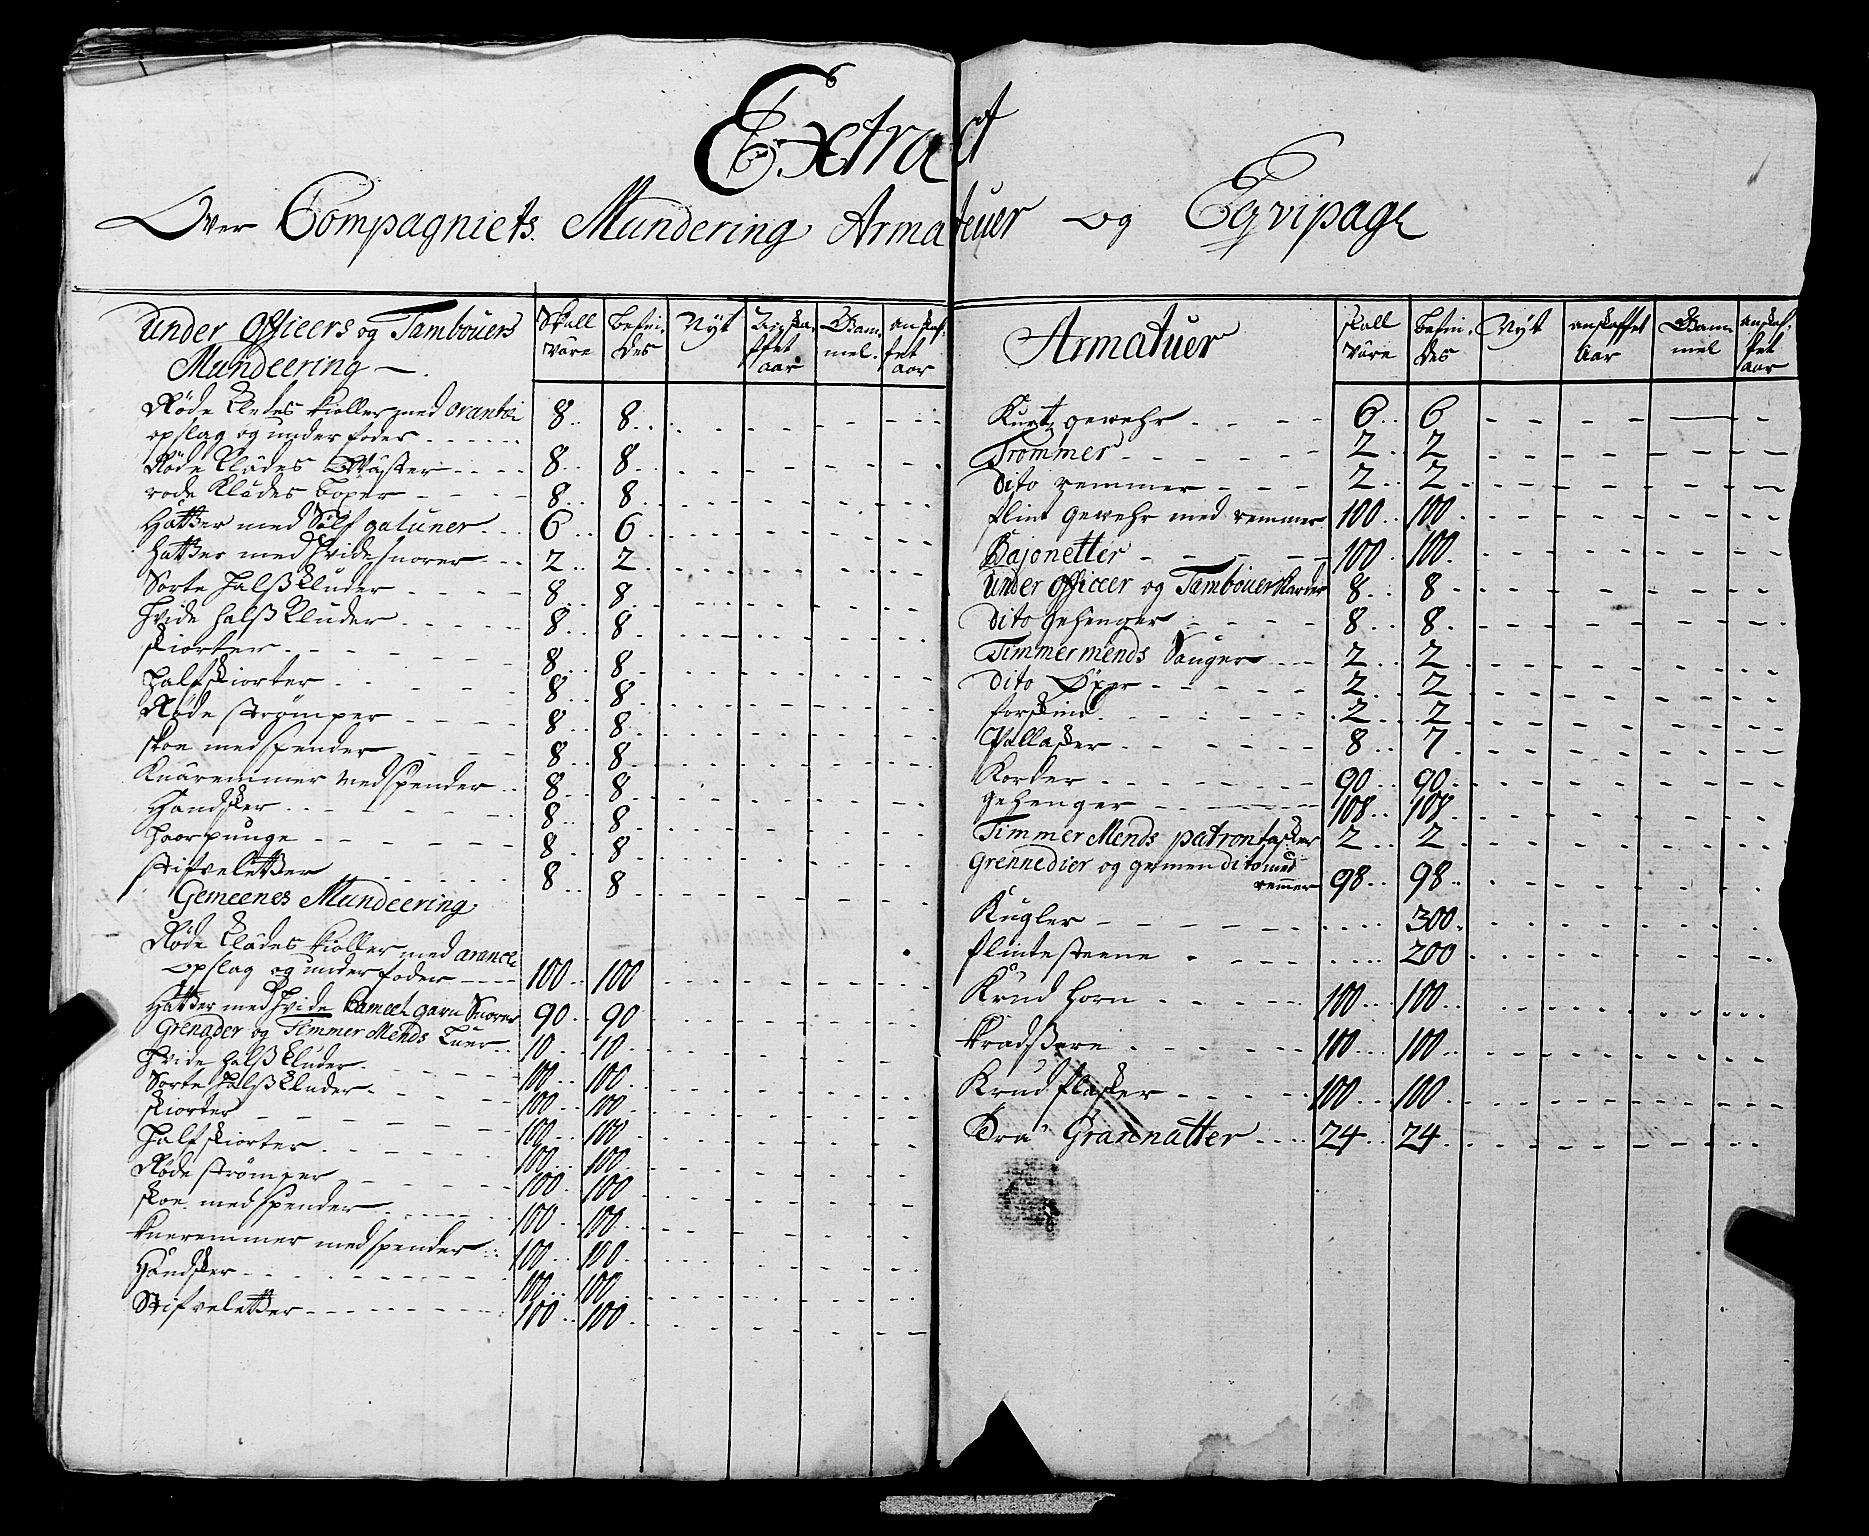 Extract
Over Compagniets Mundering Armatuer og Eqvipage
Under Officers og Tambouers Mundeering
Skall være | Befindes | Nyt | Anskaffet aar | Gammel | anskaffet aar
Røde Klædes Kioller med oranttie
opslag og under foder 8 8
Røde Klædes Wæster 8 8
røde Klædes 8 8
Hatter med Sølf galuner 6 6
hatter med Hvide snorer 2 2
Sorte Halsskluder 8 8
Hvide halsskluder 8 8
skiorter 8 8
Halfskiorter 8 8
Røde strømper 8 8
skoe med spender 8 8
Knæremmer med spender 8 8
Handsker 8 8
Haarpunge 8 8
stifveletter 8 8
Gemeenes Mundeering
Røde Klædes Kioller med
opslag og under foder 100 100
Hatter med Hvide Cameel garn Snorer 90 90
Grenader og Timmer Mends Luer 10 10
Hvide halsskluder 100 100
Sorte Halsskluder 100 100
skiorter 100 100
Halfskiorter 100 100
Røde strømper 100 100
skoe med spender 100 100
Kneremmer med spender 100 100
Handsker 100 100
Stifveletter 100 100
Armatuer
skall være | Befindes | Nyt | anskaffet aar | Gammel | anskaffet aar
Kurtz gewehr 6 6
Trommer 2 2
dito remmer 2 2
flint gewehr med remmer 100 100
Bajonetter 100 100
Under Officeer og Tambouer Karder 8 8
dito gehenger 8 8
Timmermends Sauger 2 2
dito Øxer 2 2
forskind 2 2
Pallasker 8 7
Korder 90 90
gehenger 108 108
Timmer Mends patrontasker 2 2
Grennedier og gemen dito med
remmer 98 98
Kugler 300
flintesteene 200
Krud horn 100 100
Kradssere 100 100
Krud flasker 100 100
Grannatter 24 24